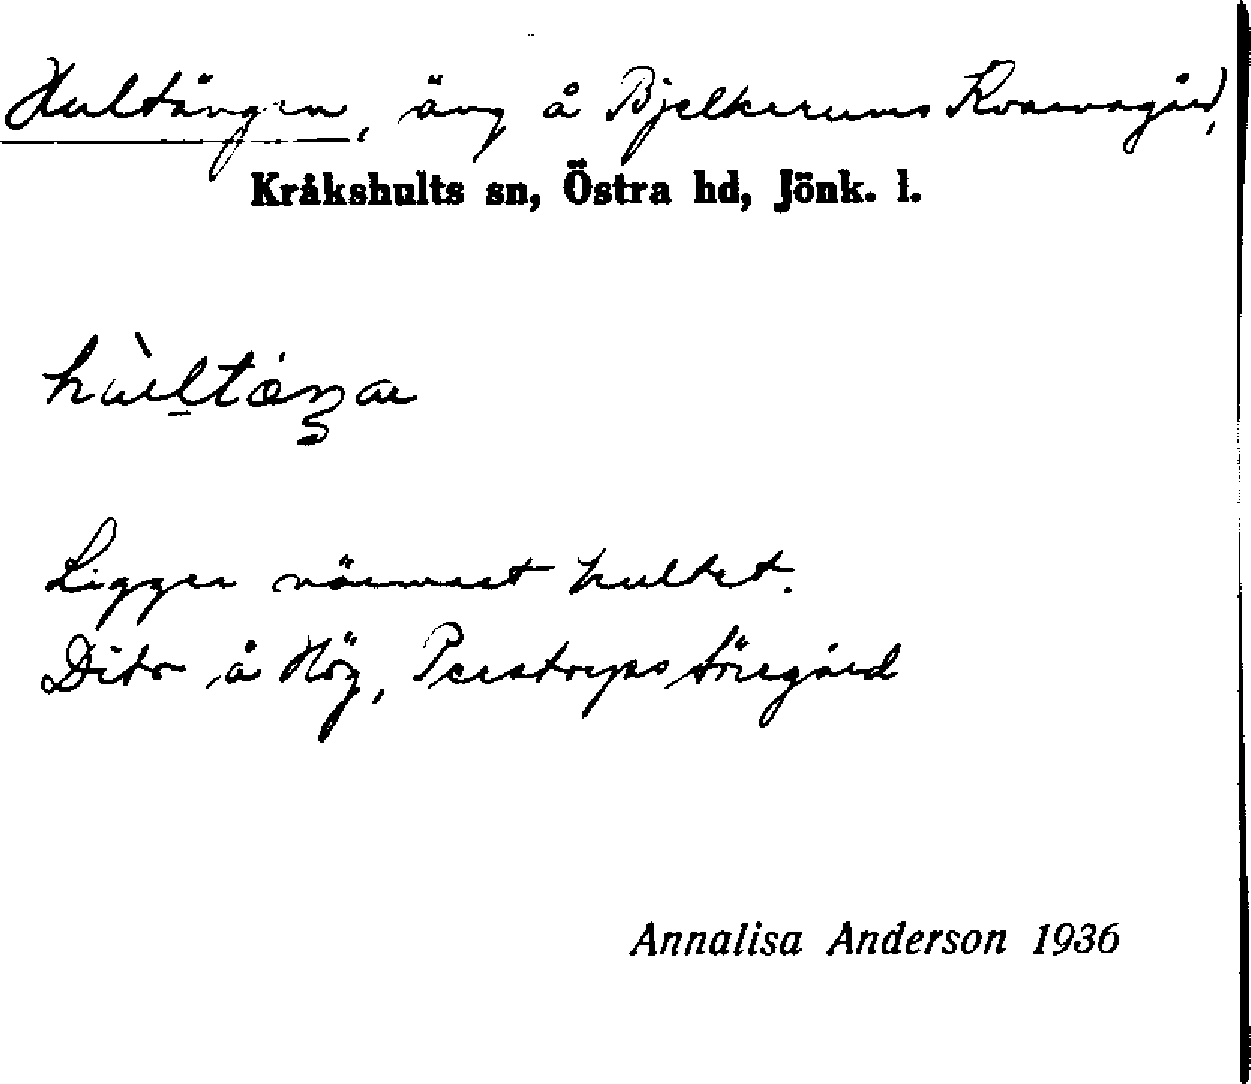 Hultängen, äng å Bjelkerums Kvarngård,
Kråkshults sn, Östra hd, Jönk. l.
Ligger närmast hultet.
Dito å Hög, Perstorps Sörgård
Annalisa Anderson 1936